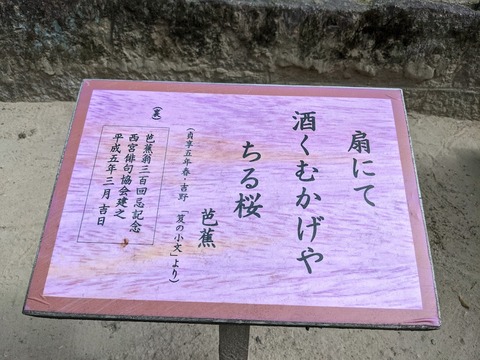 扇にて
酒くむかげや
ちる桜
芭蕉
(貞享五年春・吉野 「笈の小文」より)
(裏)
芭蕉翁三百回忌記念
西宮俳句協会建之
平成五年三月吉日